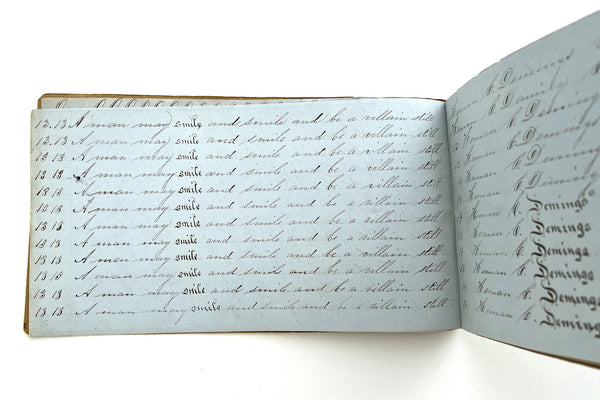 13.13 A man may smile and smile and be a villain still
13.13 A man may smile and smile and be a villain still
13 13 A man may smile and smile and be a villain still
13 13 A man may smile and smile and be a villain still
13 13 A man may smile and smile and be a villain still
13 13 A man may smile and smile and be a villain still
13 13 A man may smile and smile and be a villain still
13 13 A man may smile and smile and be a villain still
13 13 A man may smile and smile and be a villain still
13 13 A man may smile and smile and be a villain still
13 13 A man may smile and smile and be a villain still
13 13 A man may smile and smile and be a villain still
Heman C. Demings
Heman C. Deming
Heman C. Deming
Heman C. Demings
Heman C. Deming
Heman C. Deming
Heman C. Demings
Heman C. Demings
Heman C. Demings
Heman C. Demings
Heman C. Demings